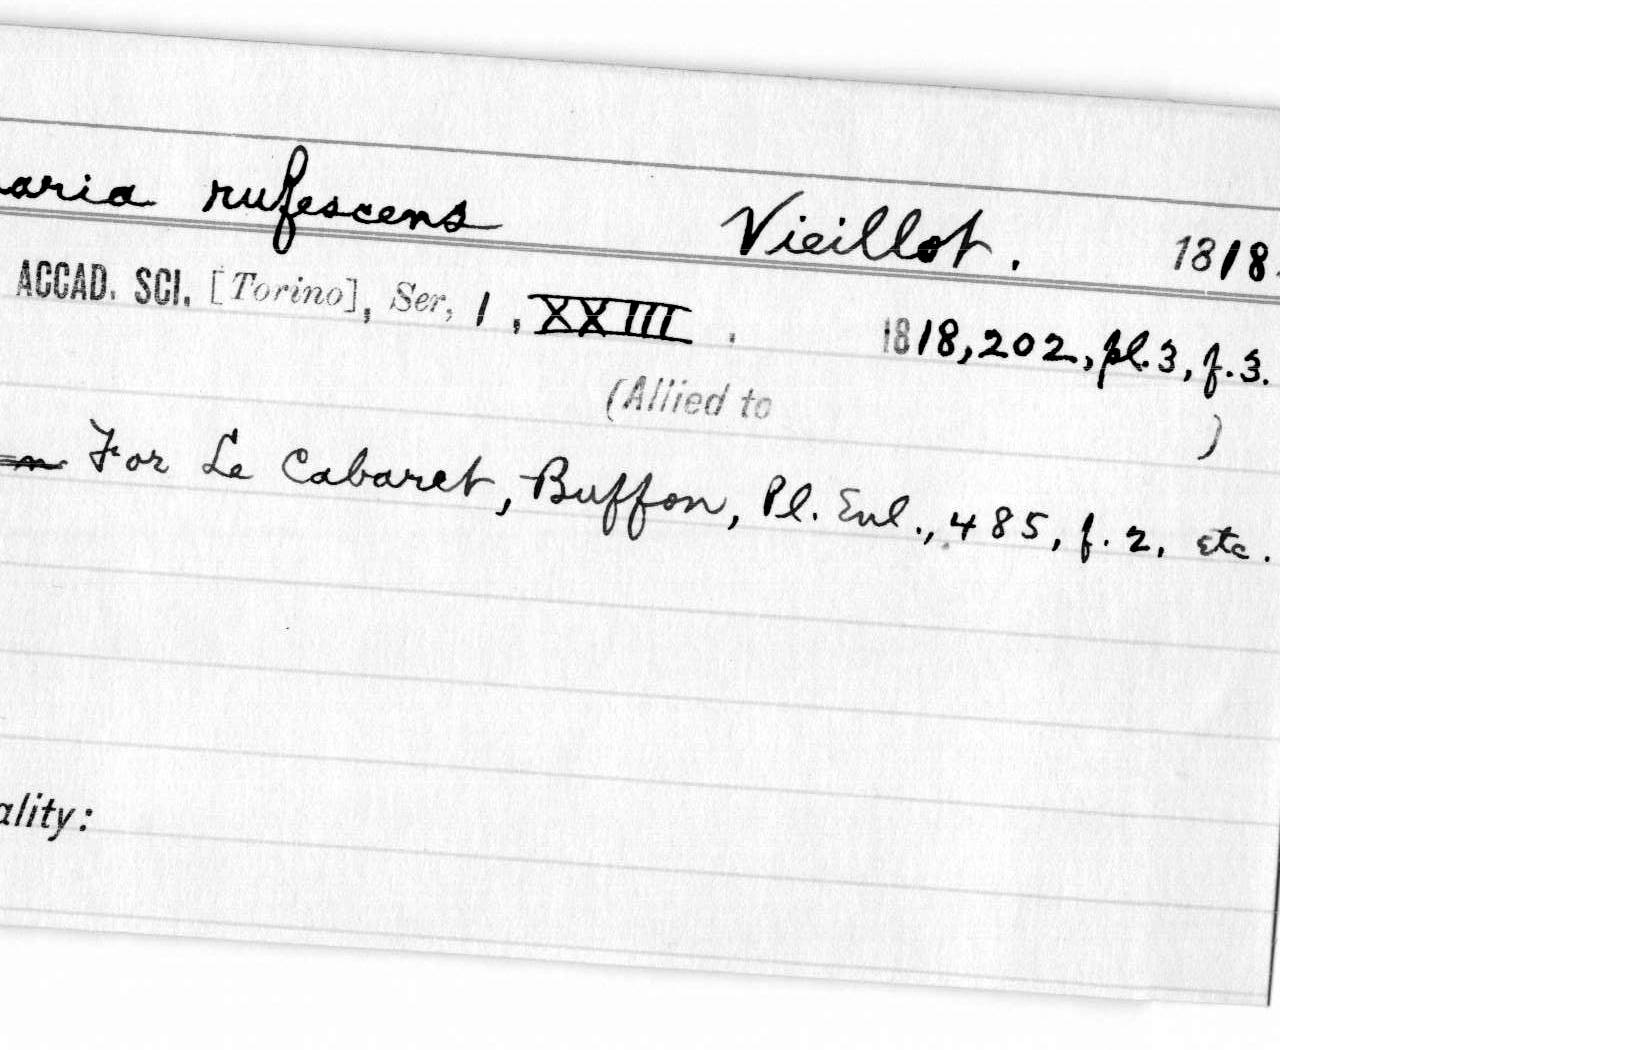 aria rufescens Vieillot. 1818.
ACCAD. SCI. [Torino], Ser, 1, XXIII. 1818, 202, pl. 3, f. 3.
(Allied to )
For Le Cabaret, Buffon, Pl. Enl., 485, f. 2, etc.
ality: